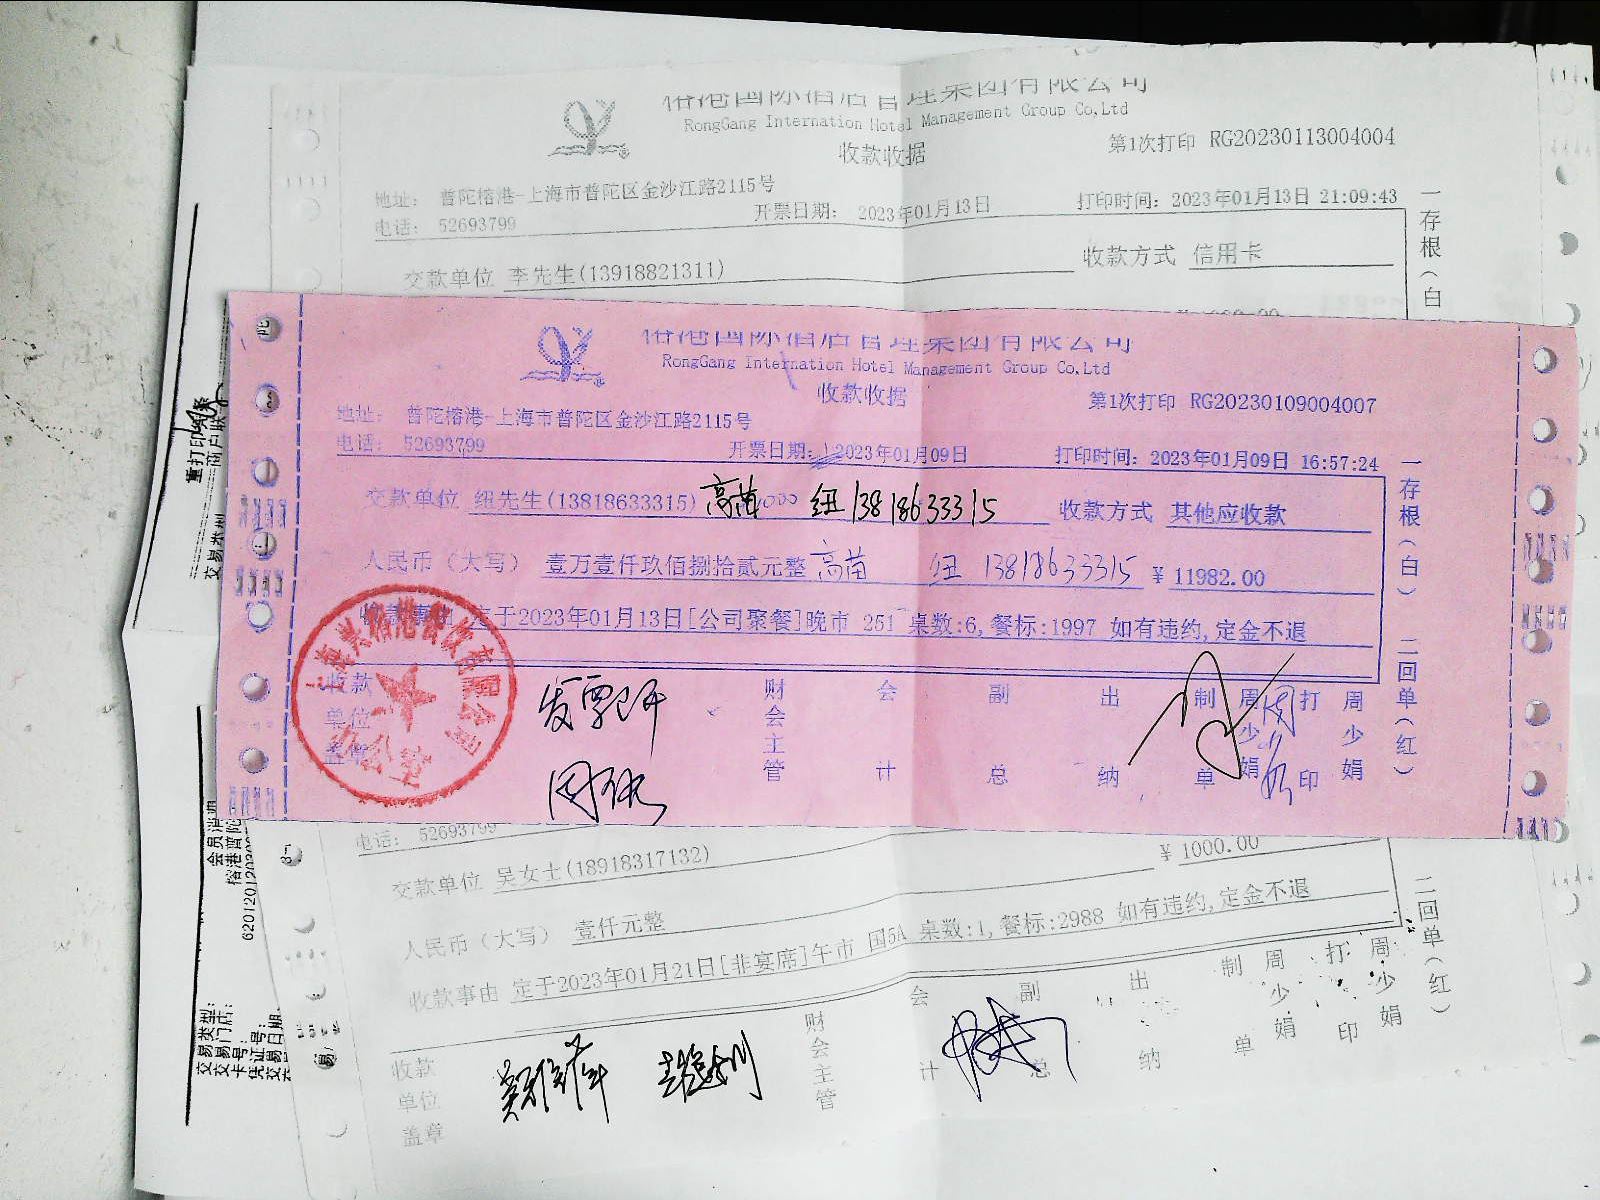 RongGang Internation Hotel Management Group Co,Ltd
收款收据
第1次打印 RG20230113004004
地址： 普陀榕港-上海市普陀区金沙江路2115号
电话： 52693799
开票日期： 2023年01月13日
打印时间：2023年01月13日 21:09:43
交款单位 李先生(13918821311)
收款方式 信用卡
存根(白
RongGang Internation Hotel Management Group Co,Ltd
收款收据
第1次打印 RG20230109004007
地址： 普陀榕港-上海市普陀区金沙江路2115号
电话： 52693799
开票日期： 2023年01月09日
打印时间：2023年01月09日 16:57:24
交款单位 纽先生(13818633315) 高苗 纽 13818633315 收款方式 其他应收款
人民币（大写） 壹万壹仟玖佰捌拾贰元整 高苗 纽 13818633315 ¥ 11982.00
收款事由 定于2023年01月13日[公司聚餐]晚市 251 桌数:6,餐标:1997 如有违约,定金不退
收款单位盖章
发票已开
财会主管
会计
副总
出纳
制单
周少娟
打印
周少娟
一存根(白) 二回单(红)
电话： 52693799
¥ 1000.00
交款单位 吴女士(18918317132)
人民币（大写） 壹仟元整
收款事由 定于2023年01月21日[非宴席]午市 国5A 桌数:1,餐标:2988 如有违约,定金不退
收款单位盖章
财会主管
会计
副总
出纳
制单
周少娟
打印
周少娟
二回单(红)
重打印
商户联
交易类型
会员消
榕港普陀
交易类型：
交易门店：
卡号：
凭证号：
交易日期